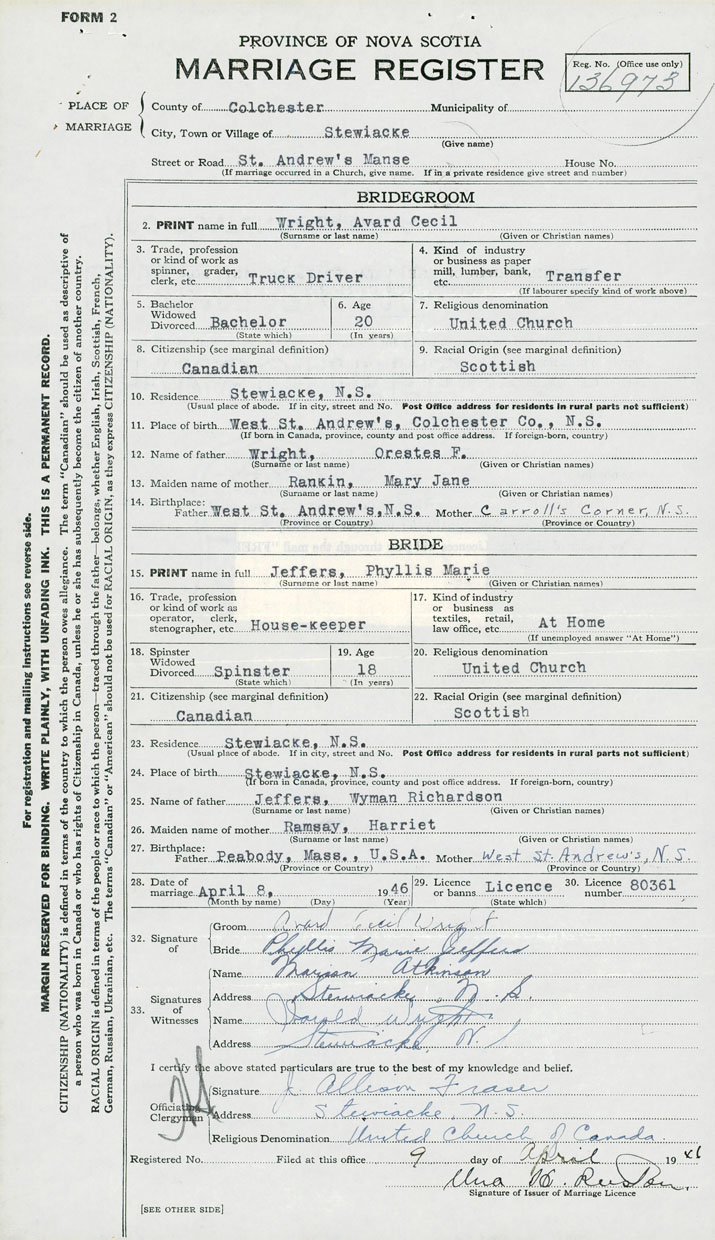 FORM 2
PROVINCE OF NOVA SCOTIA
MARRIAGE REGISTER
Reg. No. (Office use only)
136973
PLACE OF MARRIAGE
County of Colchester Municipality of
City, Town or Village of Stewiacke
(Give name)
Street or Road St. Andrew's Manse House No.
(If marriage occurred in a Church, give name. If in a private residence give street and number)
BRIDEGROOM
2. PRINT name in full Wright, Avard Cecil
(Surname or last name) (Given or Christian names)
3. Trade, profession or kind of work as spinner, grader, clerk, etc. Truck Driver
4. Kind of industry or business as paper mill, lumber, bank, etc. Transfer
(If labourer specify kind of work above)
5. Bachelor Widowed Divorced Bachelor
(State which)
6. Age 20
(In years)
7. Religious denomination
United Church
8. Citizenship (see marginal definition)
Canadian
9. Racial Origin (see marginal definition)
Scottish
10. Residence Stewiacke, N.S.
(Usual place of abode. If in city, street and No. Post Office address for residents in rural parts not sufficient)
11. Place of birth West St. Andrew's, Colchester Co., N.S.
(If born in Canada, province, county and post office address. If foreign-born, country)
12. Name of father Wright, Orestes F.
(Surname or last name) (Given or Christian names)
13. Maiden name of mother Rankin, Mary Jane
(Surname or last name) (Given or Christian names)
14. Birthplace:
Father West St. Andrew's,N.S. Mother Carroll's Corner, N.S.
(Province or Country) (Province or Country)
BRIDE
15. PRINT name in full Jeffers, Phyllis Marie
(Surname or last name) (Given or Christian names)
16. Trade, profession or kind of work as operator, clerk, stenographer, etc. House-keeper
17. Kind of industry or business as textiles, retail, law office, etc. At Home
(If unemployed answer "At Home")
18. Spinster Widowed Divorced Spinster
(State which)
19. Age 18
(In years)
20. Religious denomination
United Church
21. Citizenship (see marginal definition)
Canadian
22. Racial Origin (see marginal definition)
Scottish
23. Residence Stewiacke, N.S.
(Usual place of abode. If in city, street and No. Post Office address for residents in rural parts not sufficient)
24. Place of birth Stewiacke, N.S.
(If born in Canada, province, county and post office address. If foreign-born, country)
25. Name of father Jeffers, Wyman Richardson
(Surname or last name) (Given or Christian names)
26. Maiden name of mother Ramsay, Harriet
(Surname or last name) (Given or Christian names)
27. Birthplace:
Father Peabody, Mass., U.S.A. Mother West St. Andrew's, N.S.
(Province or Country) (Province or Country)
28. Date of marriage April 8, 1946
(Month by name) (Day) (Year)
29. Licence or banns Licence
(State which)
30. Licence number 80361
32. Signature of
Groom Avard Cecil Wright
Bride Phyllis Marie Jeffers
33. Signatures of Witnesses
Name Atkinson
Address Stewiacke, N.S.
Name Wright
Address Stewiacke N.
I certify the above stated particulars are true to the best of my knowledge and belief.
Officiating Clergyman
Signature J. Allison Fraser
Address Stewiacke, N.S.
Religious Denomination United Church of Canada.
Registered No. Filed at this office 9 day of April 1946
Una
Signature of Issuer of Marriage Licence
[SEE OTHER SIDE]
For registration and mailing instructions see reverse side.
MARGIN RESERVED FOR BINDING. WRITE PLAINLY, WITH UNFADING INK. THIS IS A PERMANENT RECORD.
CITIZENSHIP (NATIONALITY) is defined in terms of the country to which the person owes allegiance. The term "Canadian" should be used as descriptive of
a person who was born in Canada or who has rights of Citizenship in Canada, unless he or she has subsequently become the citizen of another country.
RACIAL ORIGIN is defined in terms of the people or race to which the person—traced through the father—belongs, whether English, Irish, Scottish, French,
German, Russian, Ukrainian, etc. The terms "Canadian" or "American" should not be used for RACIAL ORIGIN, as they express CITIZENSHIP (NATIONALITY).